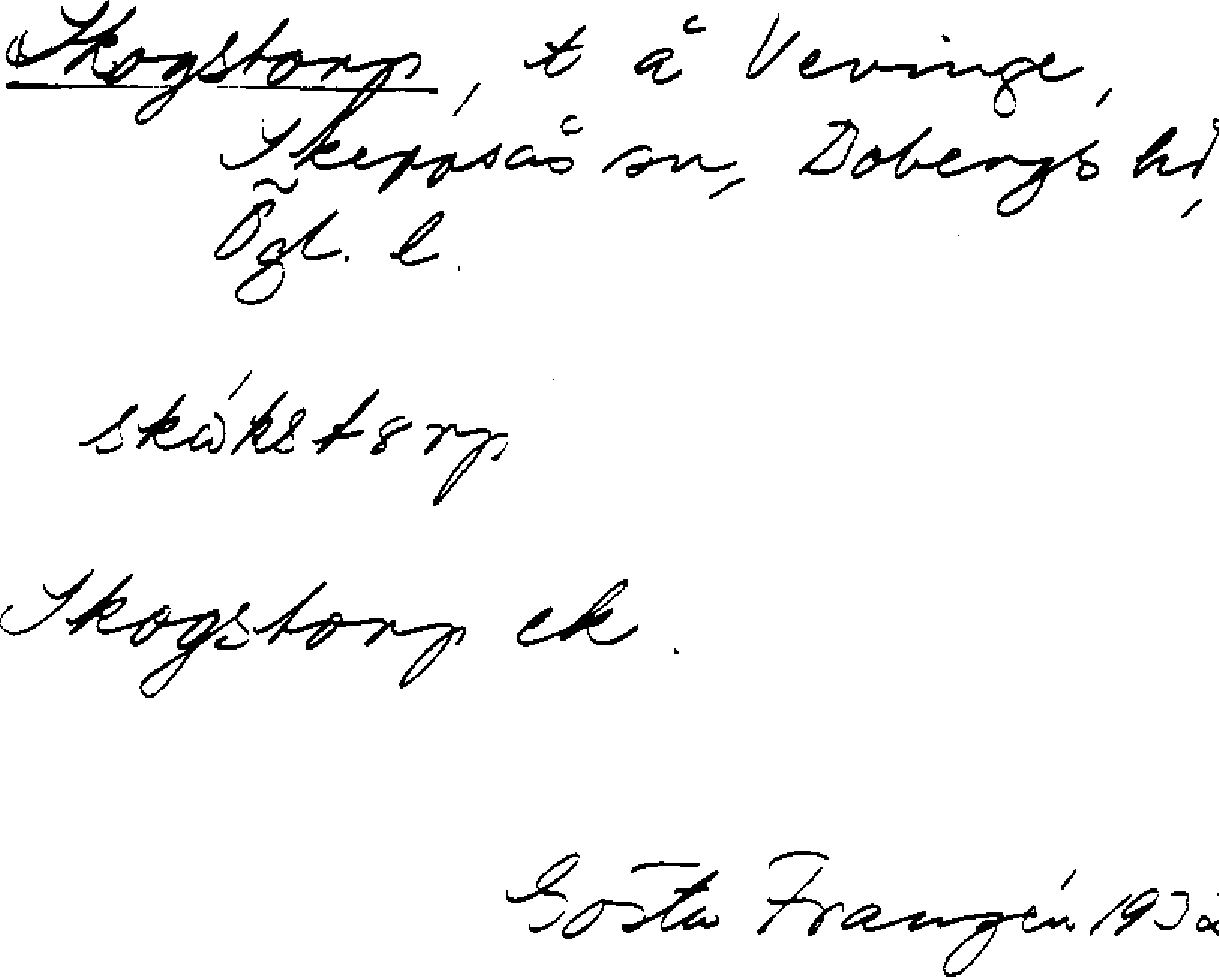 Skogstorp, t å Vevinge,
Skeppsås sn, Dobergs hd,
Ögl. l.
skɷ́kstɤrp
Skogstorp ek.
Gösta Franzén 1932